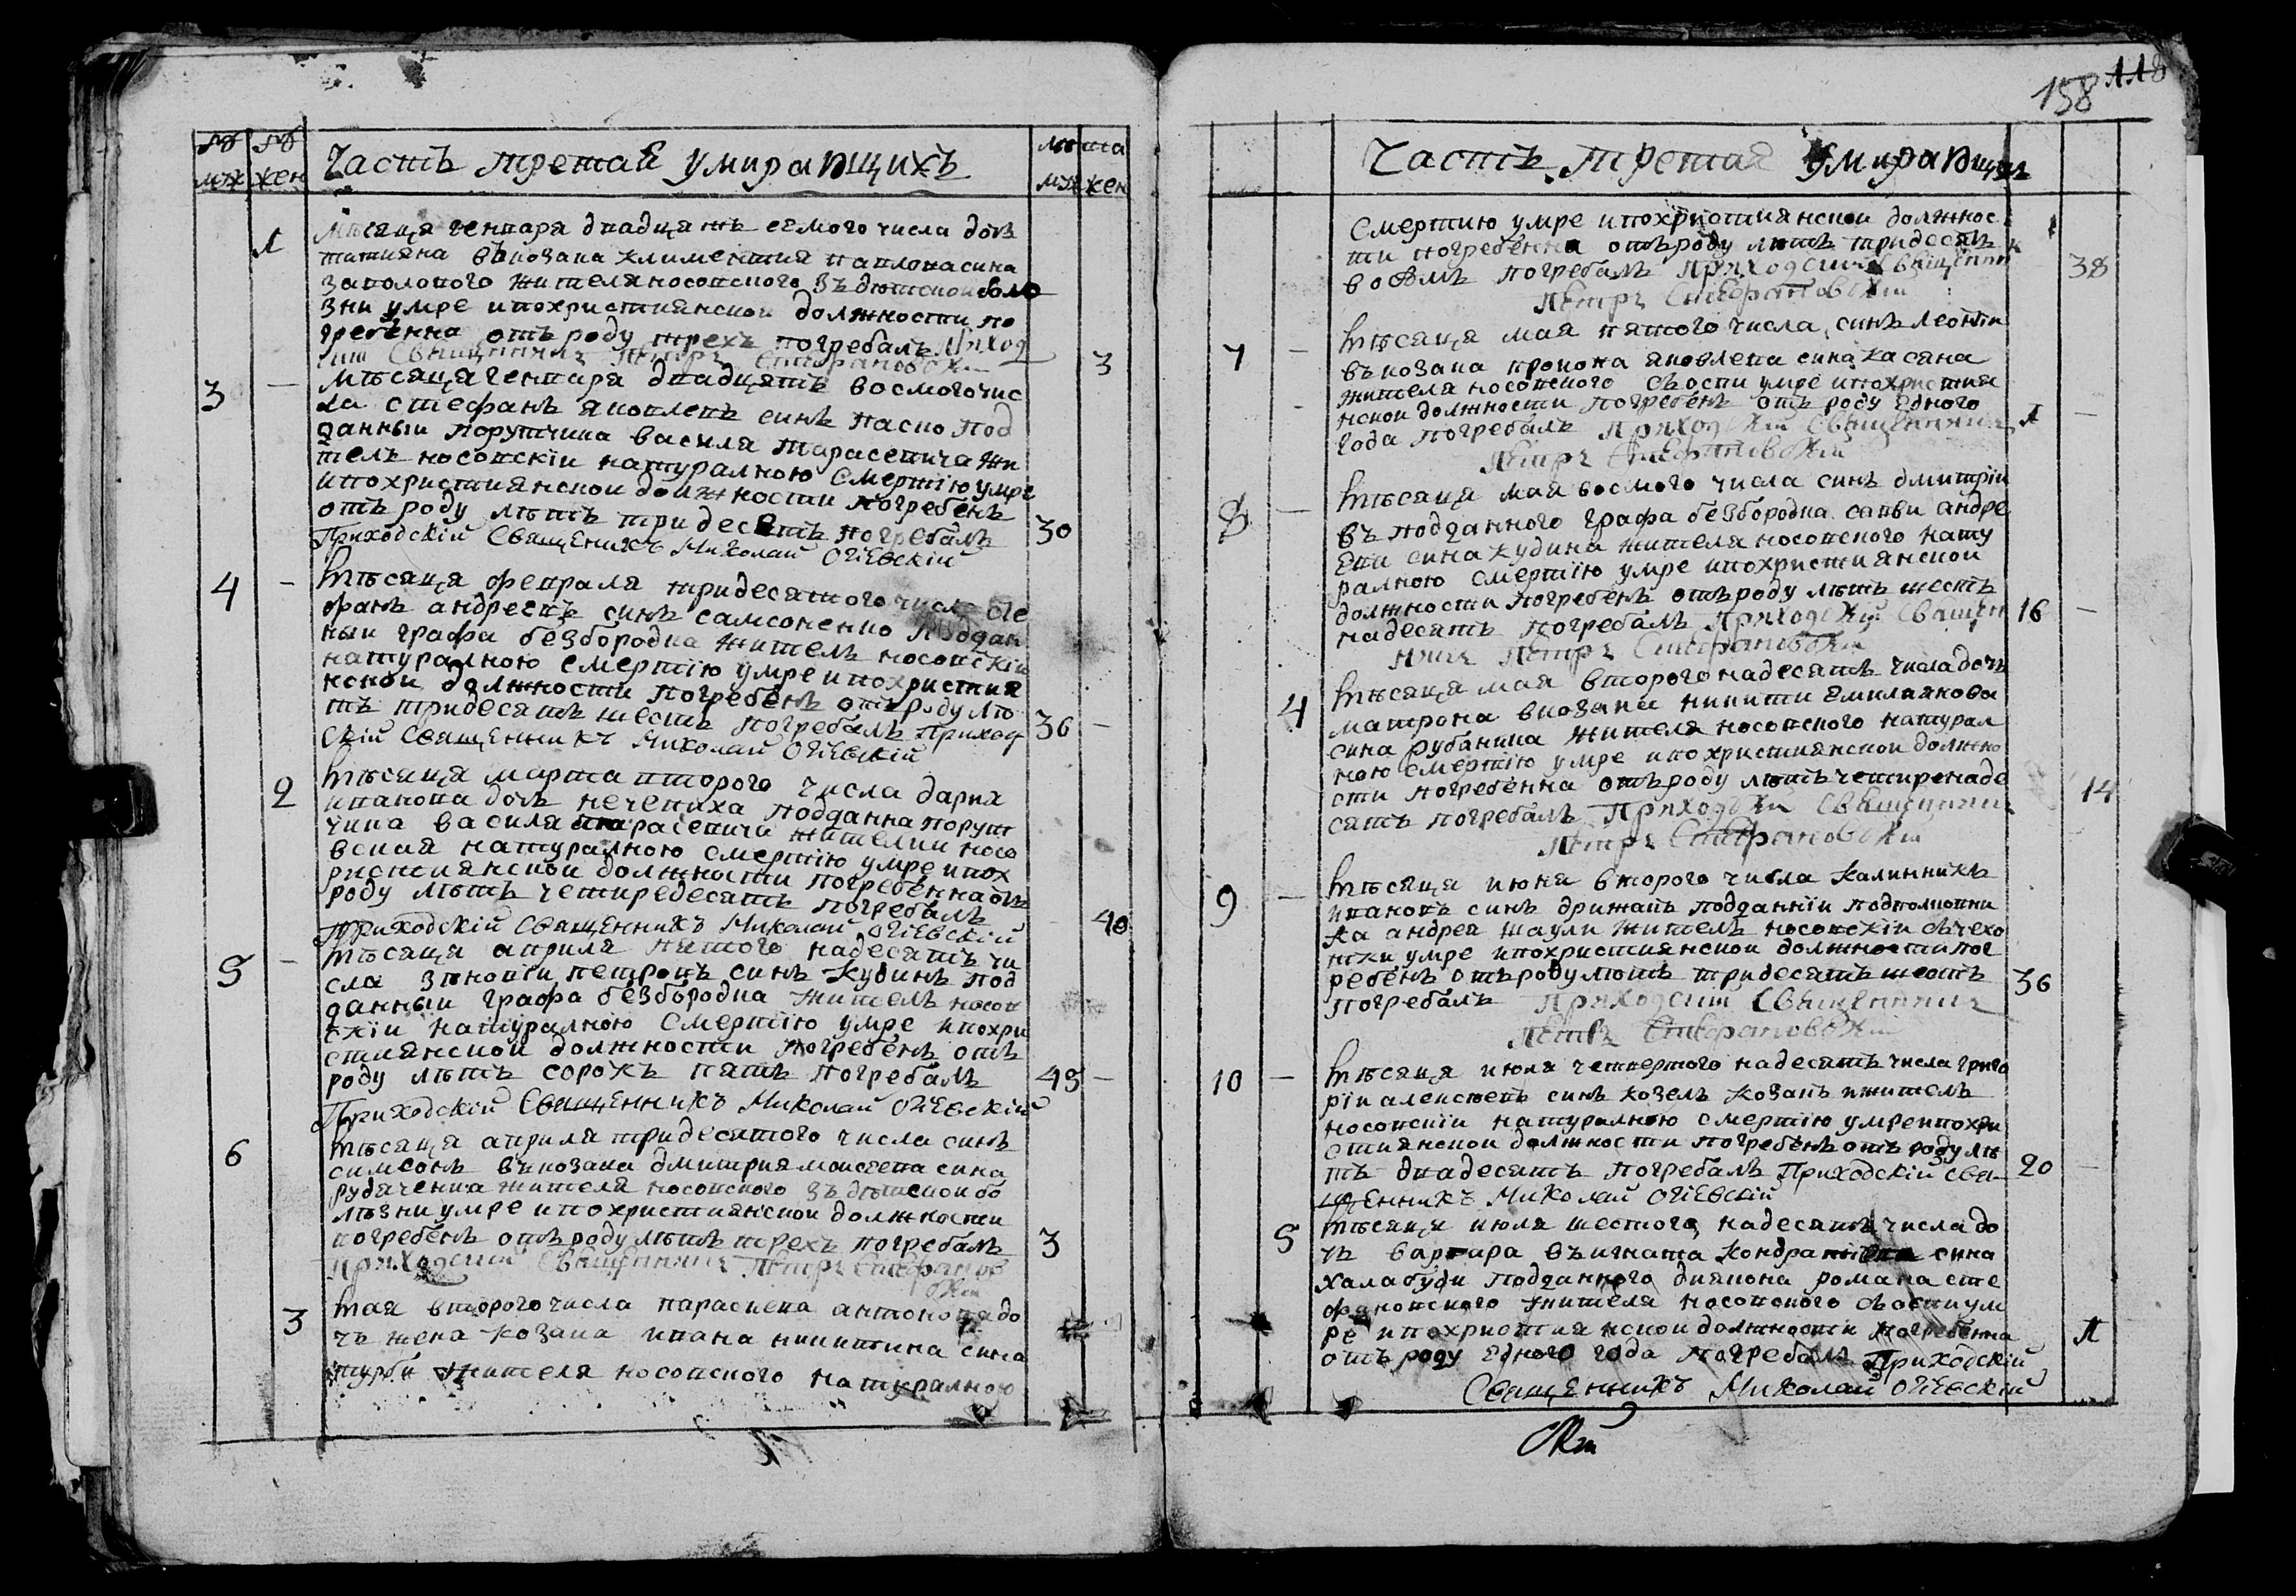 № муж № жен Часть третая умирающихъ лѣта муж жен
1 Мѣсяца генвара двадцять семого числа дочь
татияна въ козака климентия павлова сина
заполоного жителя носовского въ дѣтской боле
зни умре и по християнской должности по
гребенна отъ роду трехъ погребалъ Приход
ский Священникъ Петръ Стефановский 3
3 — Мѣсяца генвара двадцять восмого чис
ла стефанъ яковлевъ синъ паско под
данный порутчика василя тарасевича жи
тель носовскій натуралною смертію умре
и по християнской должности погребенъ
отъ роду лѣтъ тридесять погребалъ 30
Приходскій Священникъ Миколай Огіевскій
4 — Мѣсяца феврала тридесятого числа сте
фанъ андреевъ синъ самсоненко поддан
ный графа безбородка житель носовскій
натуралною смертію умре и по христия
нской должности погребенъ отъ роду лѣ
тъ тридесять шесть погребалъ Приход 36 —
скій Священникъ Миколай Огіевскій
2 Мѣсяца марта второго числа дария
иванова дочь нечепиха подданна порут
чика василя тарасевича жителки носо
вская натуралною смертію умре и по х
ристиянской должности погребенна отъ
роду лѣтъ четиредесять погребалъ
Приходскій Священникъ Миколай Огіевскій 40
5 — Мѣсяца априля пятого надесять чи
сла зѣновій петровъ синъ кудинъ под
данный графа безбородка житель носов
скій натуралною смертію умре и по хри
стиянской должности погребенъ отъ
роду лѣтъ сорокъ пять погребалъ 45 —
Приходскій Священникъ Миколай Огіевскій
6 Мѣсяца априля тридесятого числа синъ
симеонъ въ козака дмитрия моисеева сина
рудаченка жителя носовского въ дѣтской бо
лѣзни умре и по християнской должности
погребенъ отъ роду лѣтъ трехъ погребалъ 3
Приходский Священникъ Петръ Стефанов
ский
3 Мая второго числа параскева антонова до
чъ жена козака ивана никитина сина
турби жителя носовского натуралною
158 118
Часть третая умирающихъ
смертию умре и по християнской должнос
ти погребенна отъ роду лѣтъ тридесять и
восѣмъ погребалъ Приходский Священник 38
Петръ Стефановский
7 — Мѣсяца мая пятого числа синъ леонтій
въ козака прокопа яковлева сина касяна
жителя носовского съ оспи умре и по христия
нской должности погребенъ отъ роду едного 1 —
года погребалъ Приходский Священникъ
Петръ Стефановский
8 — Мѣсяца мая восмого числа синъ дмитрій
въ подданного графа безбородка савви андре
еви сина кудина жителя носовского нату
ралною смертію умре и по християнской
должности погребенъ отъ роду лѣтъ шесть
надесять погребалъ Приходский Священ 16 —
никъ Петръ Стефановский
4 Мѣсяца мая второго надесять числа дочъ
матрона в козака никити емилиянова
сина рубанника жителя носовского натурал
ною смертію умре и по християнской должно
сти погребенна отъ роду лѣтъ четиренаде 14
сять погребалъ Приходский Священникъ
Петръ Стефановский
9 — Мѣсяца июня второго числа калинникъ
ивановъ синъ дрижакъ подданній подполковни
ка андрея шаули житель носовскій съ чехо
нки умре и по християнской должности пог
ребенъ отъ роду лѣтъ тридесять шесть 36
погребалъ Приходский Священникъ
Петръ Стефановский
10 — Мѣсяца июля четвертого надесять числа григо
рій алексѣевъ синъ козелъ козакъ и житель
носовскій натуралною смертію умре и по хри
стиянской должности погребенъ отъ роду лѣ
тъ двадесять погребалъ Приходскій Свя- 20 —
щенникъ Миколай Огіевскій
5 Мѣсяца июля шестого надесять числа до
чъ варвара въ игната кондратиева сина
халабуди подданного диякона романа сте
фановского жителя носовского съ оспи ум
ре и по християнской должности погребенна 1
отъ роду едного года погребалъ Приходскій
Священникъ Миколай Огіевскій